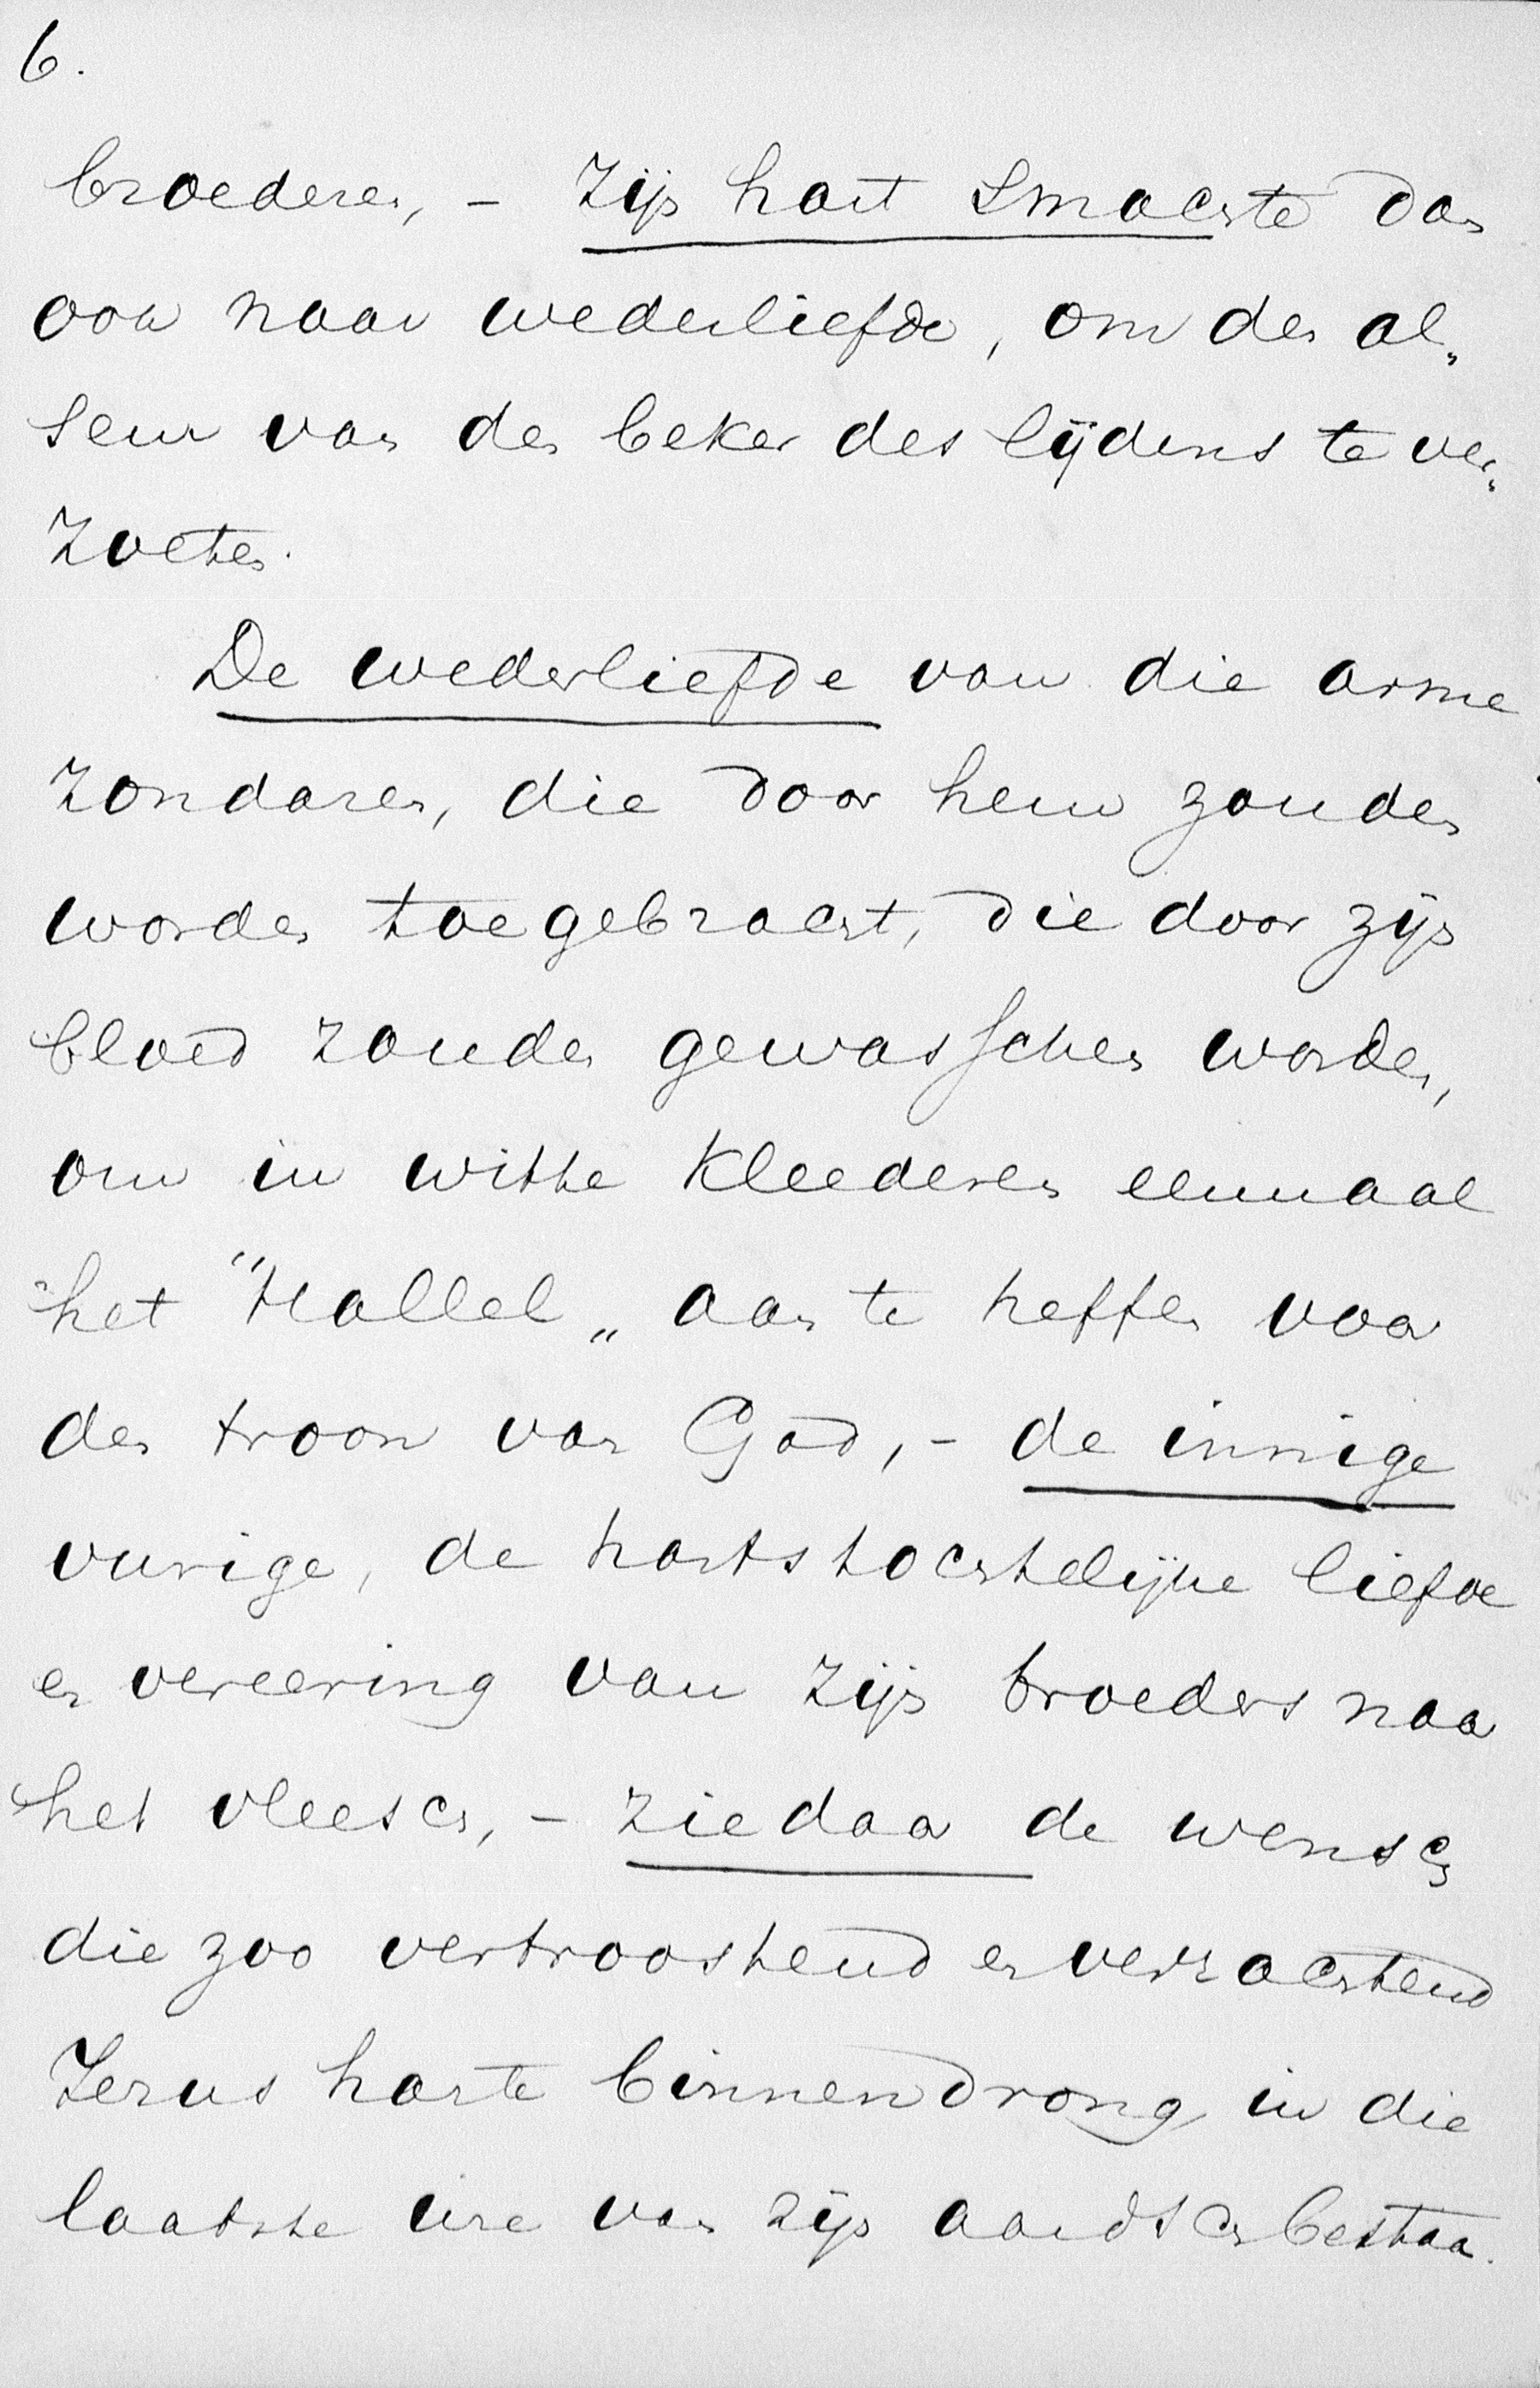 6.
broederen, - Zijn hart smachtte dan
ook naar wederliefde, om den al„
sem van den beker des lijdens te ver„
zoeten.
De wederliefde van die arme
zondaren, die door hem zouden
worden toegebracht, die door zijn
bloed zouden gewasschen worden,
om in witte kleederen eenmaal
het "Hallel„ aan te heffen voor
den troon van God, - de innige
vurige, de hartstochtelijke liefde
en vereering van zijn broeders naar
het vleesch, - ziedaar de wensch
die zoo vertroostend en verzachtend
Jezus harte binnendrong in die
laatste ure van zijn aardsch bestaan.